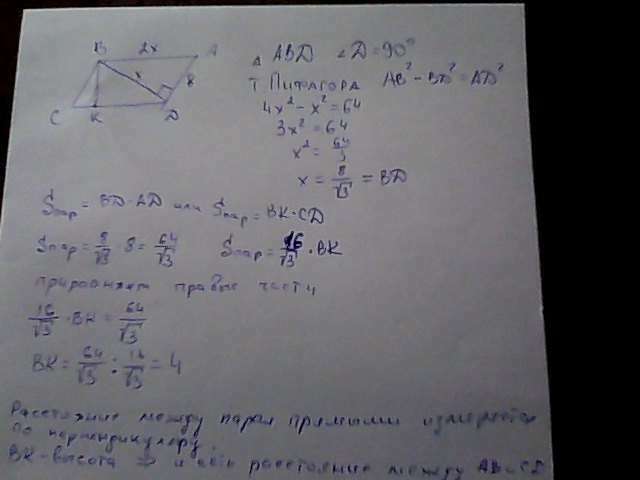 B 2x A
x 8
C K D
Δ ABD ∠D=90°
Т. Пифагора AB²-BD²=AD²
4x²-x²=64
3x²=64
x²=64/3
x=8/√3=BD
Sпар=BD·AD или Sпар=BK·CD
Sпар=8/√3·8=64/√3 Sпар=16/√3·BK
приравняем правые части
16/√3·BK=64/√3
BK=64/√3:16/√3=4
Расстояние между парал прямыми измеряется
по перпендикуляру.
BK-высота ⇒ и есть расстояние между AB и CD